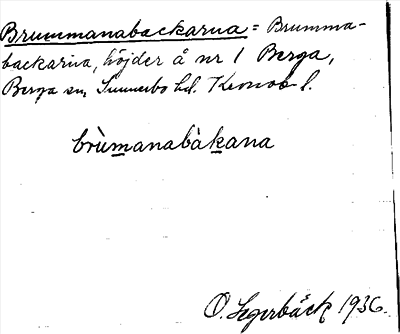 Brummanabackarna = Brumma-
backarna, höjder å nr 1 Berga,
Berga sn, Sunnerbo hd. Kronob. l.
brùmanabàkana
O. Segerbäck 1936.